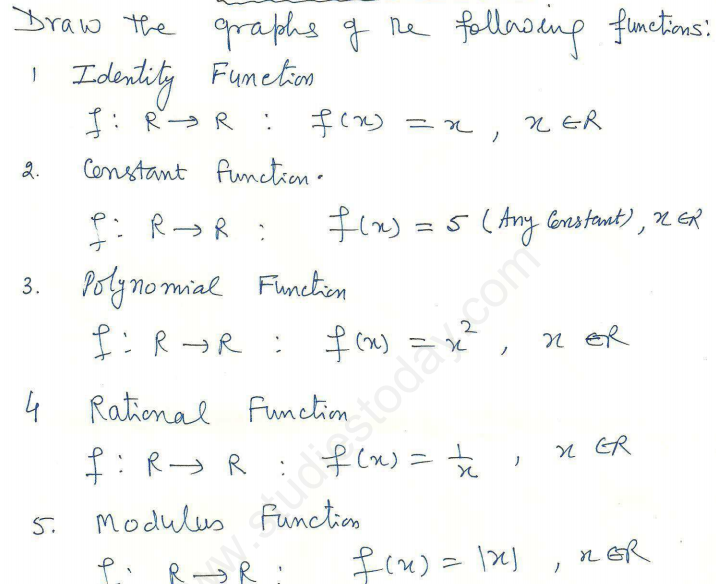 Draw the graphs of the following functions:
1 Identity Function
f: R → R : f(x) = x, x ∈ R
2. Constant function.
f: R → R : f(x) = 5 (Any Constant), x ∈ R
3. Polynomial Function
f: R → R : f(x) = x², x ∈ R
4 Rational Function
f: R → R : f(x) = 1/x, x ∈ R
5. Modulus Function
f: R → R : f(x) = |x|, x ∈ R
www.studiestoday.com